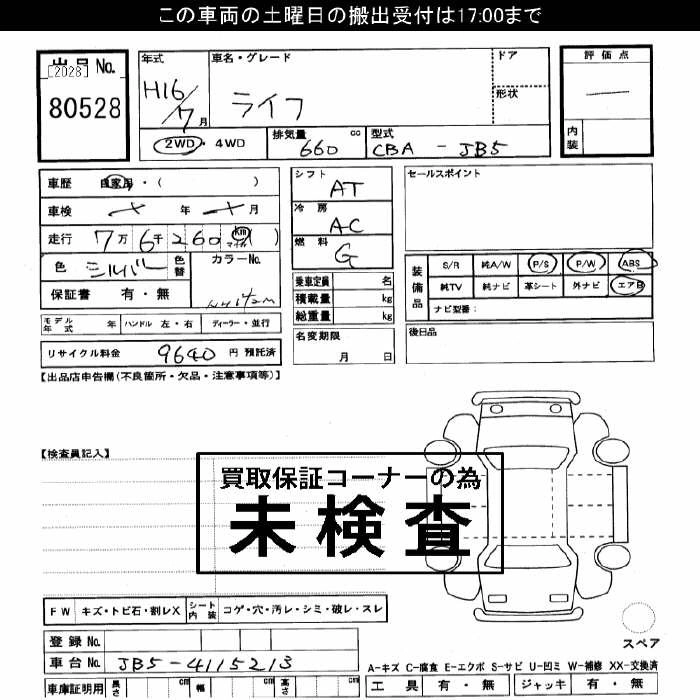 この車両の土曜日の搬出受付は17:00まで
出品No.
[2028]
80528
年式 H16/7月
車名・グレード ライフ
ドア
形状
評価点
内装
2WD・4WD
排気量 660 cc
型式 CBA - JB5
車歴 自家用・( )
車検 年 月
走行 7万6千260 km マイル( )
色 シルバー 色替
カラーNo.
保証書 有・無
モデル年式 年 ハンドル 左・右 ディーラー・並行
リサイクル料金 9640 円 預託済
シフト AT
冷房 AC
燃料 G
乗車定員 名
積載量 kg
総重量 kg
名変期限
月 日
セールスポイント
装備品
S/R 純A/W P/S P/W ABS
純TV 純ナビ 革シート 外ナビ エアB
ナビ型番:
後日品
【出品店申告欄(不良箇所・欠品・注意事項等)】
【検査員記入】
買取保証コーナーの為
未検査
FW キズ・トビ石・割レX シート内装 コゲ・穴・汚レ・シミ・破レ・スレ
登録No.
車台No. JB5-4115213
車庫証明用 長さ cm 幅 cm 高さ cm
スペア
A-キズ C-腐食 E-エクボ S-サビ U-凹ミ W-補修 XX-交換済
工具 有・無 ジャッキ 有・無